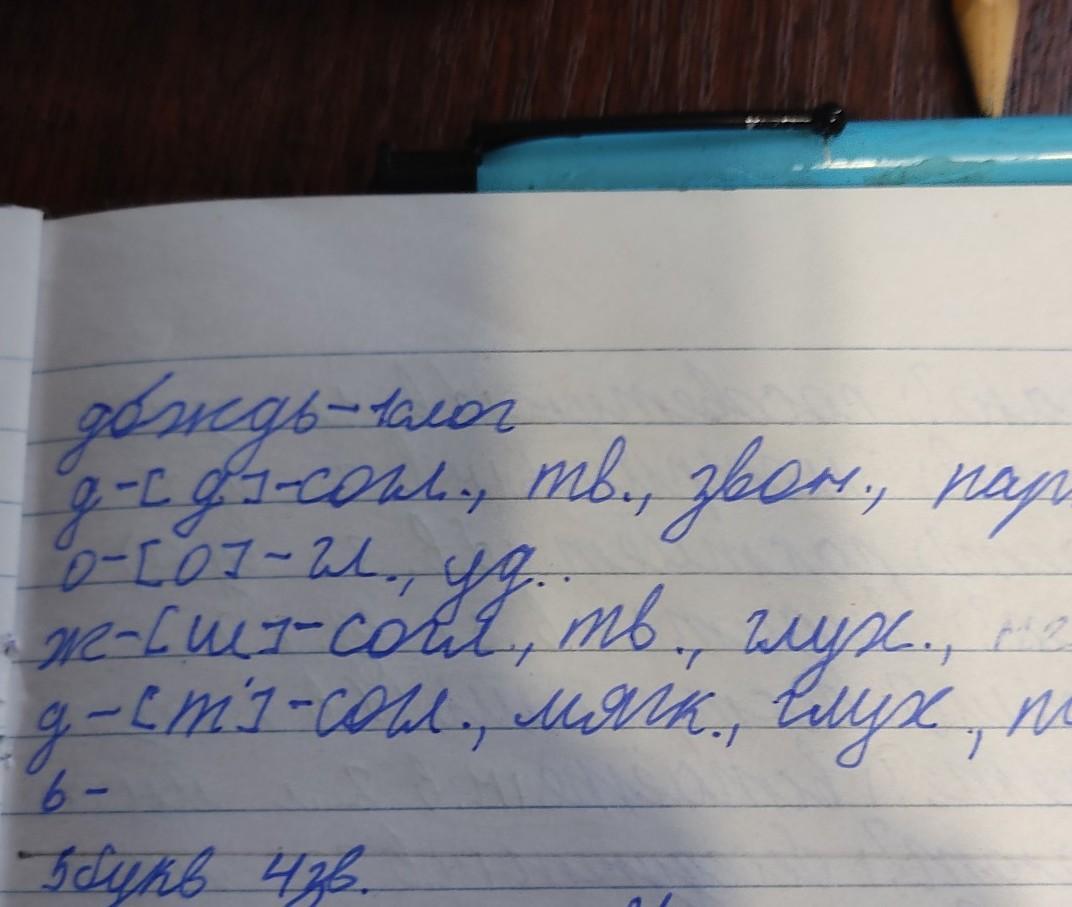 до́ждь-1слог
д-[д]-согл., тв., звон., пар
о-[о]-гл., уд..
ж-[ш]-согл., тв., глух.,
д-[т']-согл., мягк., глух,
ь-
5букв 4зв.